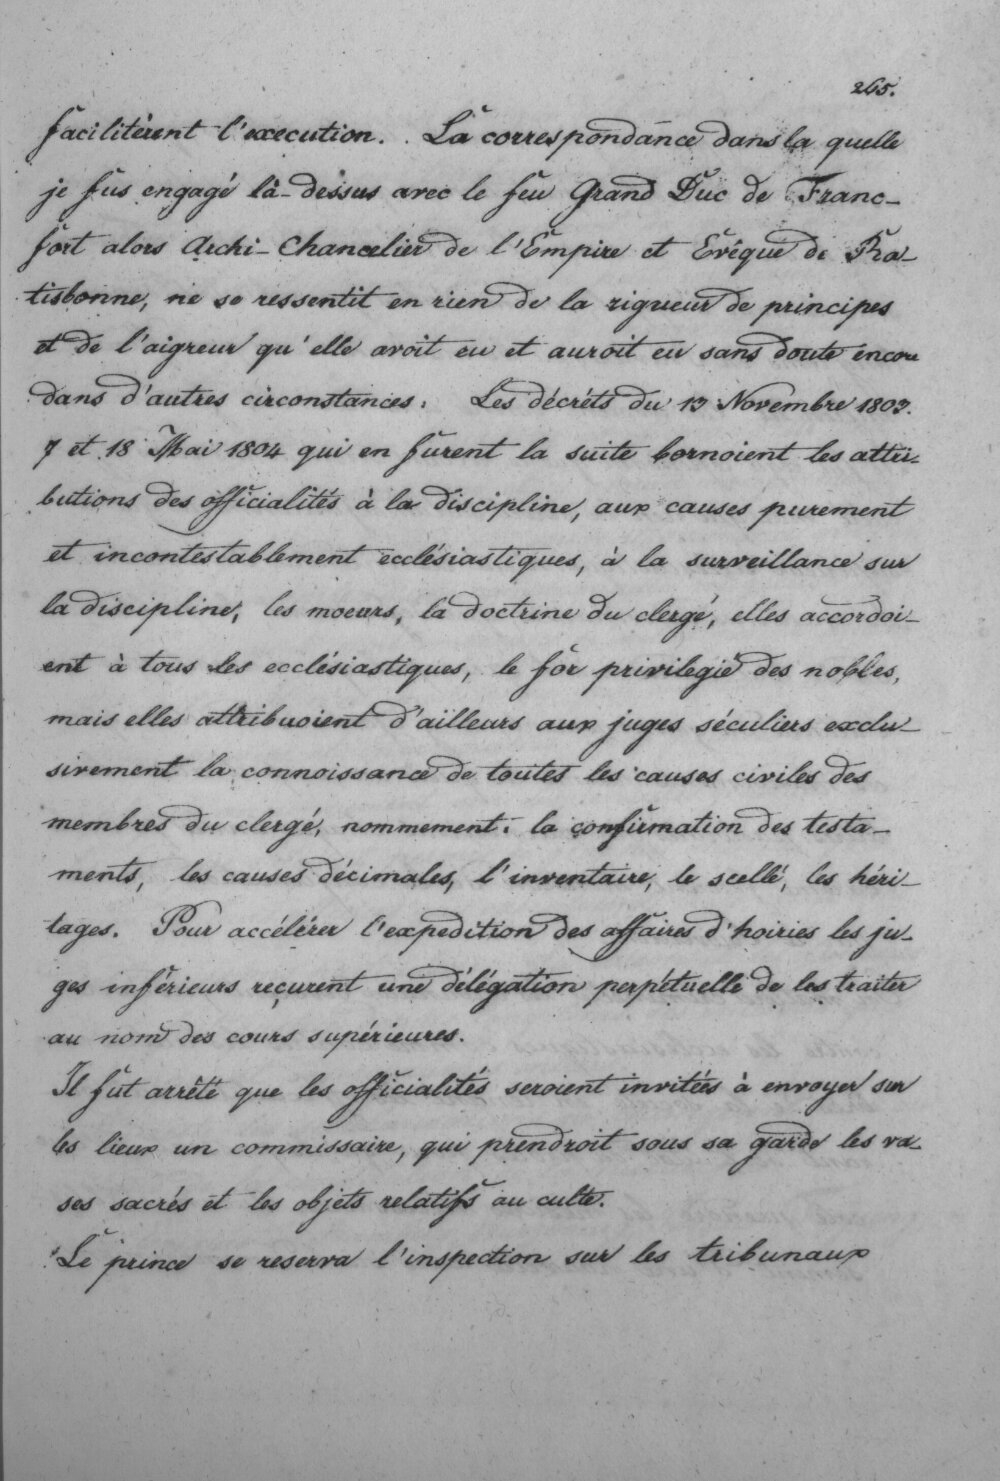 265.
facilitèrent l'execution. La correspondance dans la quelle
je fus engagé là-dessus avec le feu Grand Duc de Franc-
fort alors Archi-Chancelier de l'Empire et Evêque de Ra-
tisbonne, ne se ressentit en rien de la rigueur de principes
et de l'aigreur qu'elle avoit eu et auroit eu sans doute encore
dans d'autres circonstances. Les décréts du 13 Novembre 1803.
7 et 18 Mai 1804 qui en furent la suite bornoient les attri-
butions des officialités à la discipline, aux causes purement
et incontestablement ecclésiastiques, à la surveillance sur
la discipline, les moeurs, la doctrine du clergé, elles accordoi-
ent à tous les ecclésiastiques, le for privilegié des nobles,
mais elles attribuoient d'ailleurs aux juges séculiers exclu-
sivement la connoissance de toutes les causes civiles des
membres du clergé, nommement: la confirmation des testa-
ments, les causes décimales, l'inventaire, le scellé, les héri-
tages. Pour accélérer l'expedition des affaires d'hoiries les ju-
ges inférieurs reçurent une délégation perpétuelle de les traiter
au nom des cours supérieures.
Il fut arrêté que les officialités seroient invitées à envoyer sur
les lieux un commissaire, qui prendroit sous sa garde les va-
ses sacrés et les objets relatifs au culte.
Le prince se reserva l'inspection sur les tribunaux